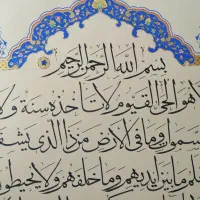 بسم الله الرحمن الرحيم
لا هو الحي القيوم لا تأخذه سنة ولا
السموات وما في الأرض من ذا الذي يشفع
يعلم ما بين أيديهم وما خلفهم ولا يحيطون